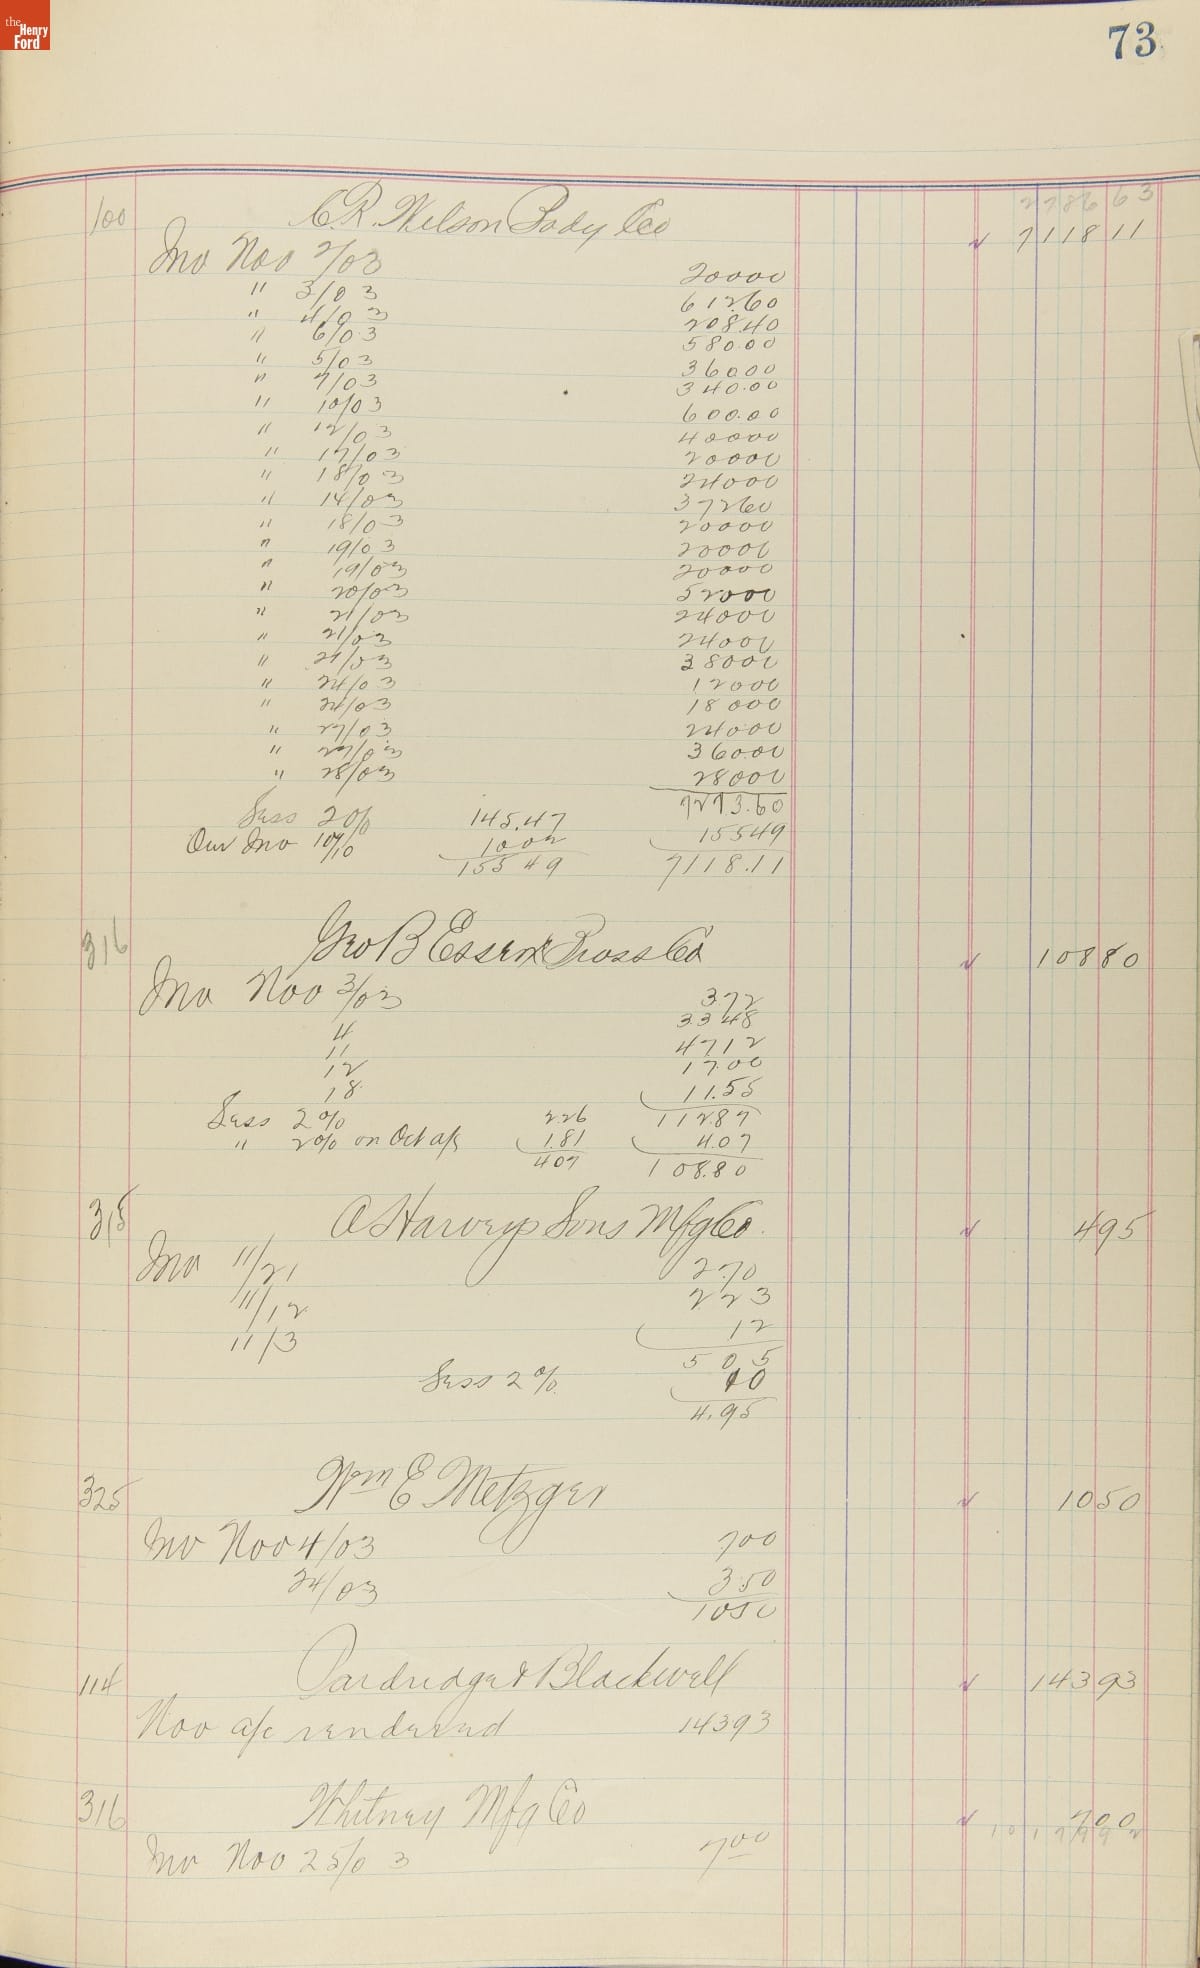 the
Henry
Ford
73
2786 63
100 C. R. Wilson Body Co 7118 11
Inv Nov 2/03 20000
" 3/03 612.60
" 4/03 208.40
" 6/03 580.00
" 5/03 36000
" 7/03 340.00
" 10/03 600.00
" 12/03 40000
" 17/03 20000
" 18/03 24000
" 14/03 37260
" 18/03 20000
" 19/03 20000
" 19/03 20000
" 20/03 52000
" 21/03 24000
" 21/03 24000
" 21/03 38000
" 24/03 12000
" 24/03 18000
" 27/03 24000
" 27/03 36000
" 28/03 28000
7273.60
Less 2% 145.47 15549
Our Inv 10/10 1002
155 49 7118.11
316 Geo B Essex Brass Co 10880
Inv Nov 3/03 3.72
4 33 48
11 4712
12 17.00
18 11.55
Less 2% 2.26 11287
" 2% on Oct a/c 1.81 4.07
407 108.80
315 A Harveys Sons Mfg Co 495
Inv 11/21 2.70
11/12 223
11/3 12
505
Less 2% 10
4.95
325 Wm E Metzger 1050
Inv Nov 4/03 700
24/03 3.50
1050
114 Pardridge & Blackwell 14393
Nov a/c rendered 14393
316 Whitney Mfg Co 700
Inv Nov 25/03 700